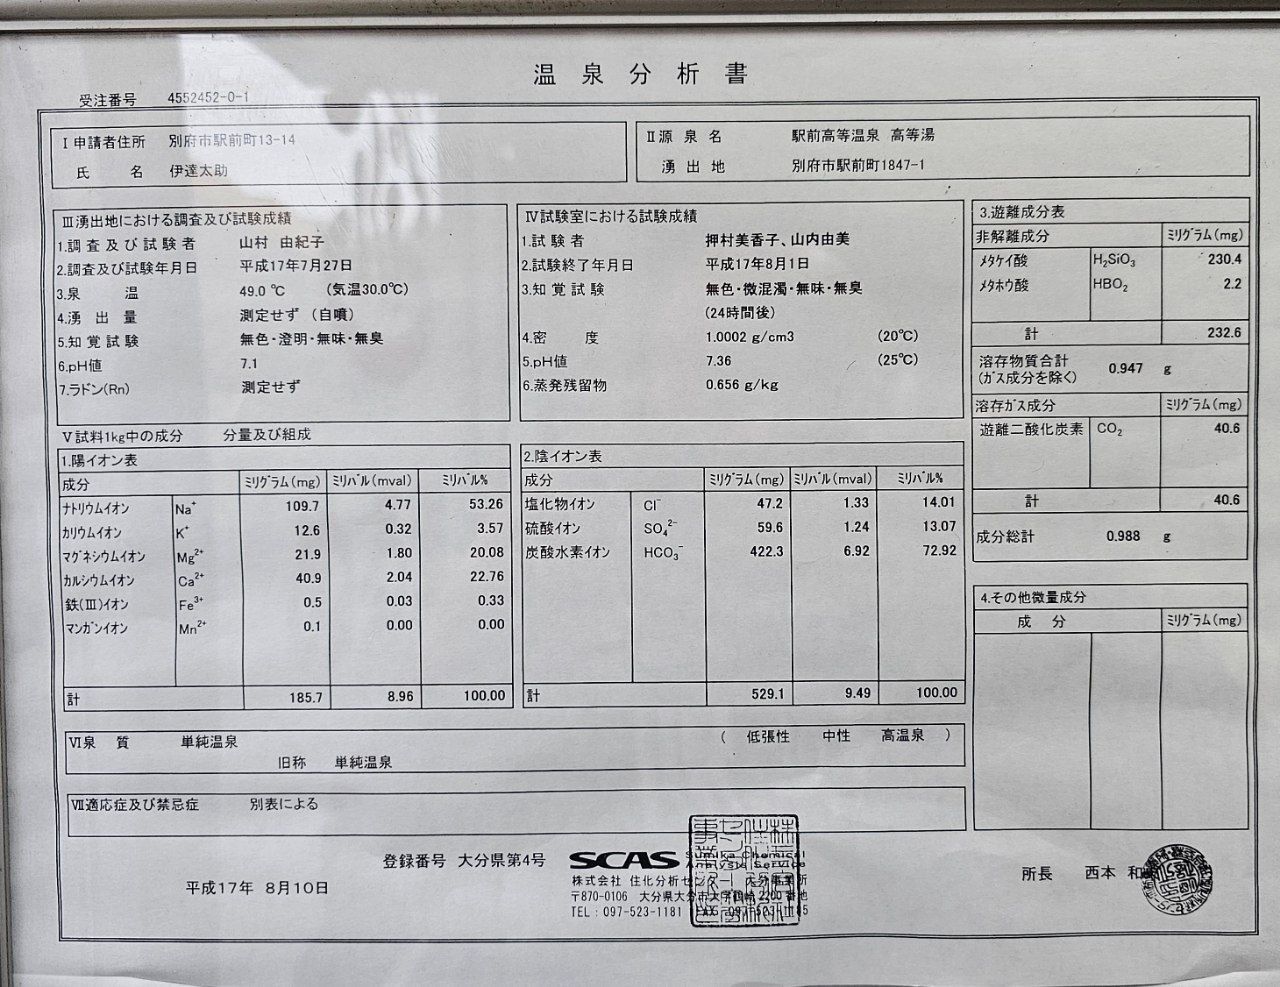 温泉分析書
受注番号 4552452-0-1
Ⅰ申請者住所 別府市駅前町13-14
氏名 伊達太助
Ⅱ源泉名 駅前高等温泉 高等湯
湧出地 別府市駅前町1847-1
Ⅲ湧出地における調査及び試験成績
1.調査及び試験者 山村 由紀子
2.調査及び試験年月日 平成17年7月27日
3.泉温 49.0 ℃ (気温30.0℃)
4.湧出量 測定せず (自噴)
5.知覚試験 無色・澄明・無味・無臭
6.pH値 7.1
7.ラドン(Rn) 測定せず
Ⅳ試験室における試験成績
1.試験者 押村美香子、山内由美
2.試験終了年月日 平成17年8月1日
3.知覚試験 無色・微混濁・無味・無臭
(24時間後)
4.密度 1.0002 g/cm3 (20℃)
5.pH値 7.36 (25℃)
6.蒸発残留物 0.656 g/kg
Ⅴ試料1kg中の成分 分量及び組成
1.陽イオン表
成分 ミリグラム(mg) ミリバル(mval) ミリバル%
ナトリウムイオン Na⁺ 109.7 4.77 53.26
カリウムイオン K⁺ 12.6 0.32 3.57
マグネシウムイオン Mg²⁺ 21.9 1.80 20.08
カルシウムイオン Ca²⁺ 40.9 2.04 22.76
鉄(Ⅲ)イオン Fe³⁺ 0.5 0.03 0.33
マンガンイオン Mn²⁺ 0.1 0.00 0.00
計 185.7 8.96 100.00
2.陰イオン表
成分 ミリグラム(mg) ミリバル(mval) ミリバル%
塩化物イオン Cl⁻ 47.2 1.33 14.01
硫酸イオン SO₄²⁻ 59.6 1.24 13.07
炭酸水素イオン HCO₃⁻ 422.3 6.92 72.92
計 529.1 9.49 100.00
3.遊離成分表
非解離成分 ミリグラム(mg)
メタケイ酸 H₂SiO₃ 230.4
メタホウ酸 HBO₂ 2.2
計 232.6
溶存物質合計 0.947 g
(ガス成分を除く)
溶存ガス成分 ミリグラム(mg)
遊離二酸化炭素 CO₂ 40.6
計 40.6
成分総計 0.988 g
4.その他微量成分
成分 ミリグラム(mg)
Ⅵ泉質 単純温泉 ( 低張性 中性 高温泉 )
旧称 単純温泉
Ⅶ適応症及び禁忌症 別表による
登録番号 大分県第4号
平成17年 8月10日
SCAS Sumika Chemical
Analysis Service
株式会社 住化分析センター 大分事業所
〒870-0106 大分県大分市大字鶴崎2200番地
TEL : 097-523-1181 FAX 097-523-1185
所長 西本 和